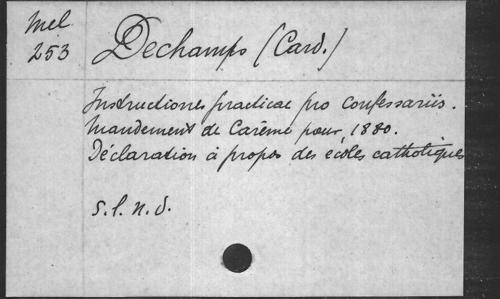 Mel
253
Dechamps (Card.)
Instructiones practicae pro confessariis.
Mandement de Carême pour 1880.
Déclaration à propos des écoles catholiques
s.l.n.d.